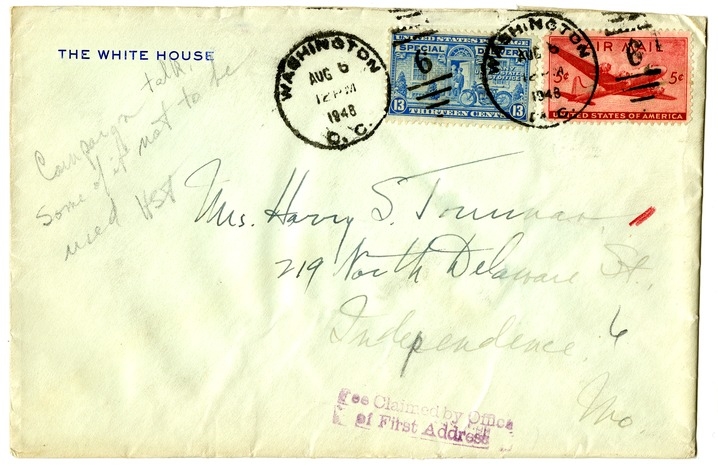 THE WHITE HOUSE
Campaign talk.
Some of it not to be
used HST
WASHINGTON
AUG 6
12 PM
1948
D. C.
UNITED STATES POSTAGE
SPECIAL DELIVERY
13 13
THIRTEEN CENTS
6
WASHINGTON
AUG 6
12 PM
1948
D. C.
AIR MAIL
5¢ 5¢
UNITED STATES OF AMERICA
6
Mrs. Harry S. Truman
219 North Delaware St.,
Independence, 6
Mo.
Fee Claimed by Office
of First Address